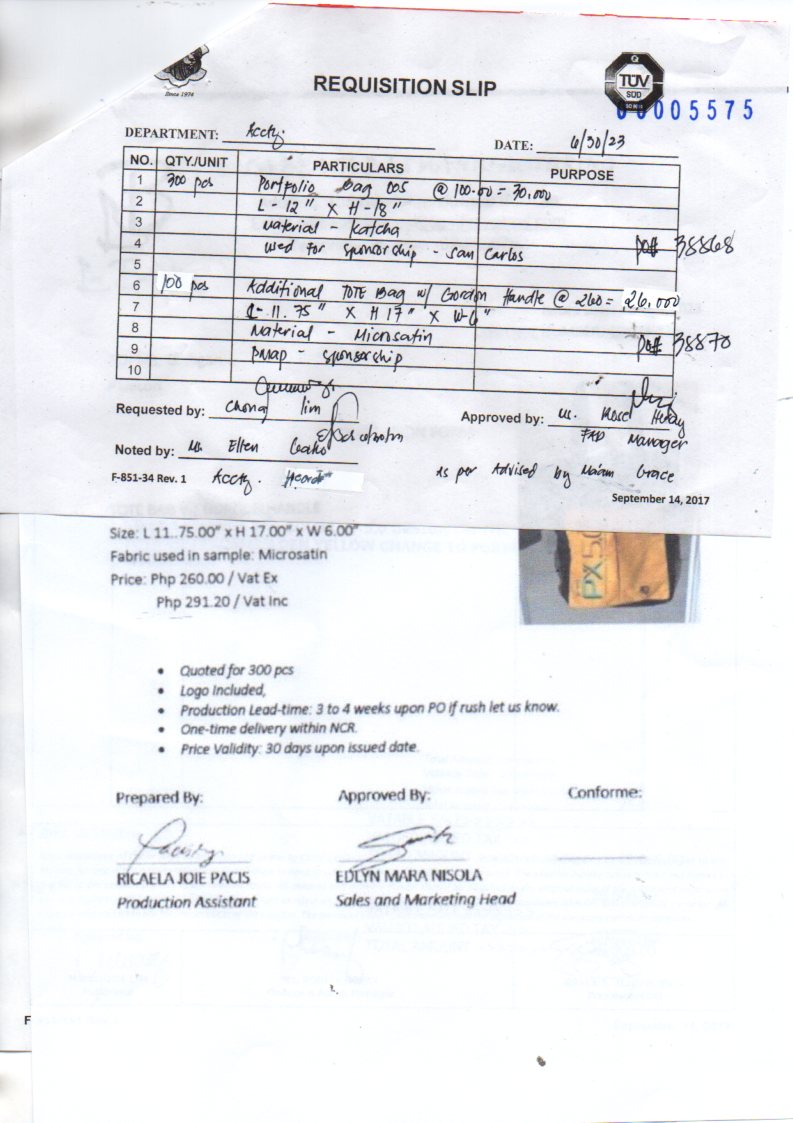 Since 1974
REQUISITION SLIP
Q
TÜV
SÜD
00005575
DEPARTMENT: Acctg.
DATE: 6/30/23
NO. QTY./UNIT PARTICULARS PURPOSE
1 300 pcs Portfolio Bag 005 @ 100.00 = 30,000
2 L - 12" X H - 18"
3 Material - Katcha
4 used for sponsorship - San Carlos PO# 38868
5
6 100 pcs Additional TOTE Bag w/ Gordon Handle @ 260 = 26,000
7 L - 11.75" X H 17" X W-6"
8 Material - Microsatin
9 PMAP - sponsorship PO# 38870
10
Requested by: Chona Lim
Approved by: Ms. Rose
FAD Manager
Noted by: Ms. Ellen
F-851-34 Rev. 1 Acctg.
As per Advised by Ma'am Grace
September 14, 2017
Size: L 11..75.00" x H 17.00" x W 6.00"
Fabric used in sample: Microsatin
Price: Php 260.00 / Vat Ex
Php 291.20 / Vat Inc
PX5.0
• Quoted for 300 pcs
• Logo Included,
• Production Lead-time: 3 to 4 weeks upon PO if rush let us know.
• One-time delivery within NCR.
• Price Validity: 30 days upon issued date.
Prepared By: Approved By: Conforme:
RICAELA JOIE PACIS EDLYN MARA NISOLA
Production Assistant Sales and Marketing Head
F